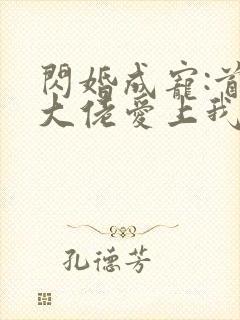 閃婚成寵:首
大佬愛上我
孔德芳